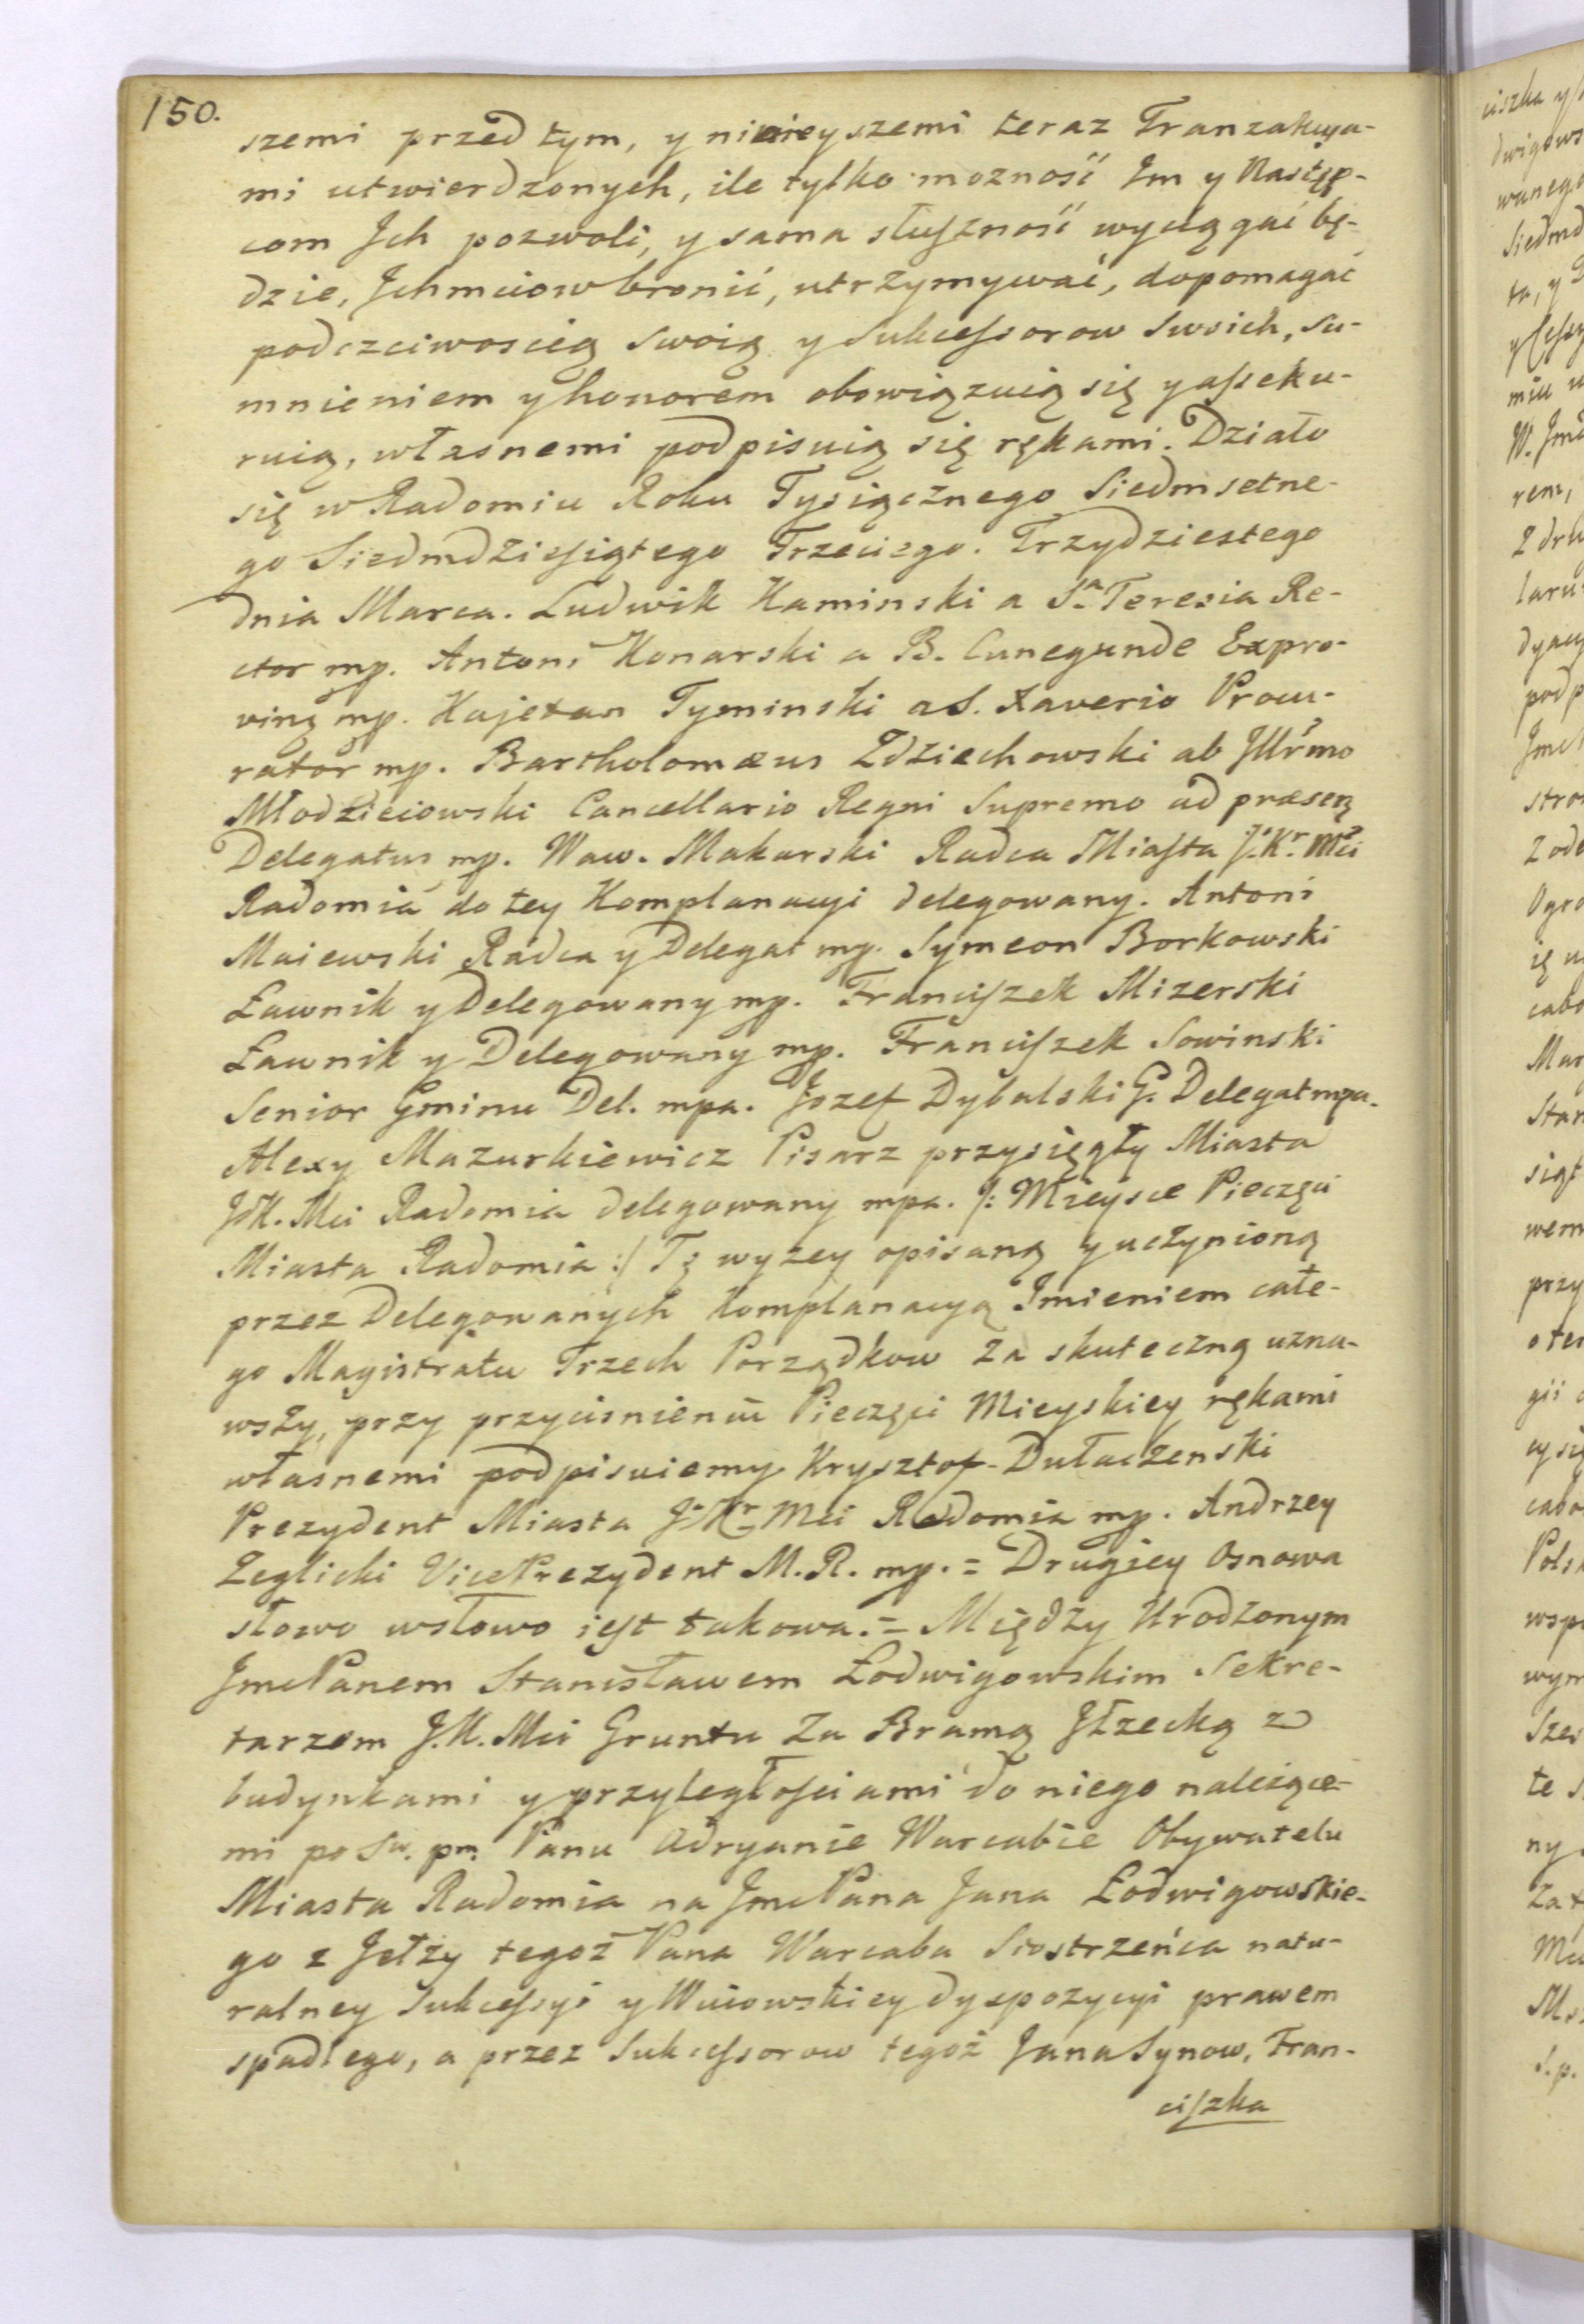 150.
szemi przed tym, y ninieyszemi teraz Tranzakcya-
mi utwierdzonych, ile tylko możność Im y Następ-
com Ich pozwoli, y sama słuſzność wyciągać bę-
dzie, Ichmciow bronić, utrzymywać, dopomagać
podczciwoscią swoią y Sukceſsorow Swoich, Su-
mnieniem y honorem obowiązuią się y aſseku-
ruią, własnemi podpisuią się rękami. Działo
się w Radomiu Roku Tysiącżnego Siedmsetne-
go Siedmdzieſiątego Trzeciego. Trzydziestego
dnia Marca. Ludwik Kaminski a Sa Teresia Re-
ctor mp. Antoni Konarski a B. Cunegunde Expro-
ving mp. Kajetan Tyminski a S. Xaverio Procu-
rator mp. Bartholomæus Zdziechowski ab Illrmo
Młodzieiowski Cancellario Regni Supremo ad præseng
Delegatus mp. Waw. Makarski Radca Miaſta J. Kr. Mci
Radomia do tey Komplanacyi delegowany. Antoni
Maiewski Radca y Delegat mp. Symeon Borkowski
Ławnik y Delegowany mp. Franciſzek Mizerski
Ławnik y Delegowany mp. Franciſzek Sowinski
Senior Gminu Del. mpa. Jozef Dybalski G. Delegat mpa.
Alexy Mazurkiewicz Pisarz przysięgły Miasta
JK. Mci Radomia delegowany mpa. /: Mieysce Pieczęci
Miasta Radomia :/ Tę wyzey opisaną y uczynioną
przez Delegowanych Komplanacyą Imieniem całe-
go Magistratu Trzech Porządkow za skuteczną uzna-
wszy, przy przycisnieniu Pieczęci Mieyskiey rękami
własnemi podpisuiemy Krysztof Dułaczenski
Prezydent Miasta J. Kr. Mci Radomia mp. Andrzey
Zeglicki VicePrezydent M. R. mp. = Drugiey Osnowa
słowo wsłowo ieſt takowa. = Między Urodzonym
JmcPanem Stanisławem Łodwigowskim Sekre-
tarzem J. K. Mci Gruntu Za Bramą Jłzecką z
budynkami y przyległoſciami do niego należące-
mi po Sw. pm. Panu Adryanie Warcabie Obywatelu
Miasta Radomia na JmcPana Jana Łodwigowskie-
go z Jełży tegoż Pana Warcaba Siostrzeńca natu-
ralney Sukceſsyi y Wuiowskiey dyspozycyi prawem
spadłego, a przez Sukceſsorow tegoż Jana Synow, Fran-
ciſzka